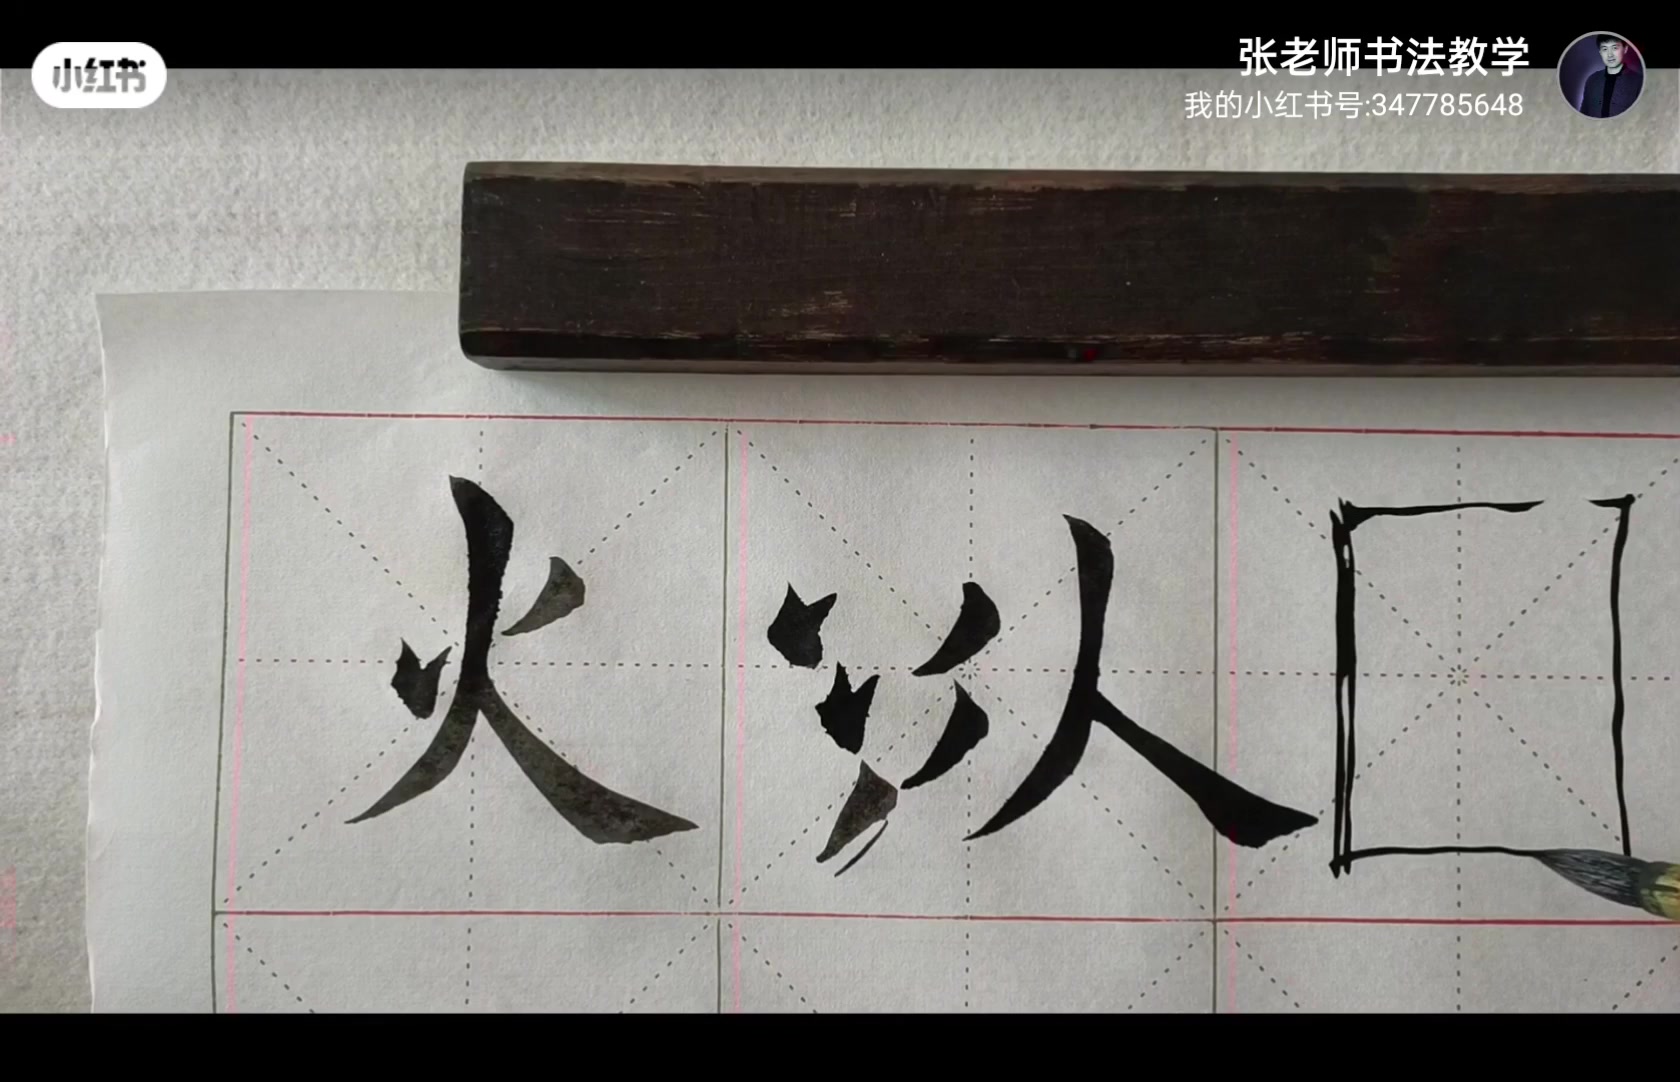 小红书
张老师书法教学
我的小红书号:347785648
火 人